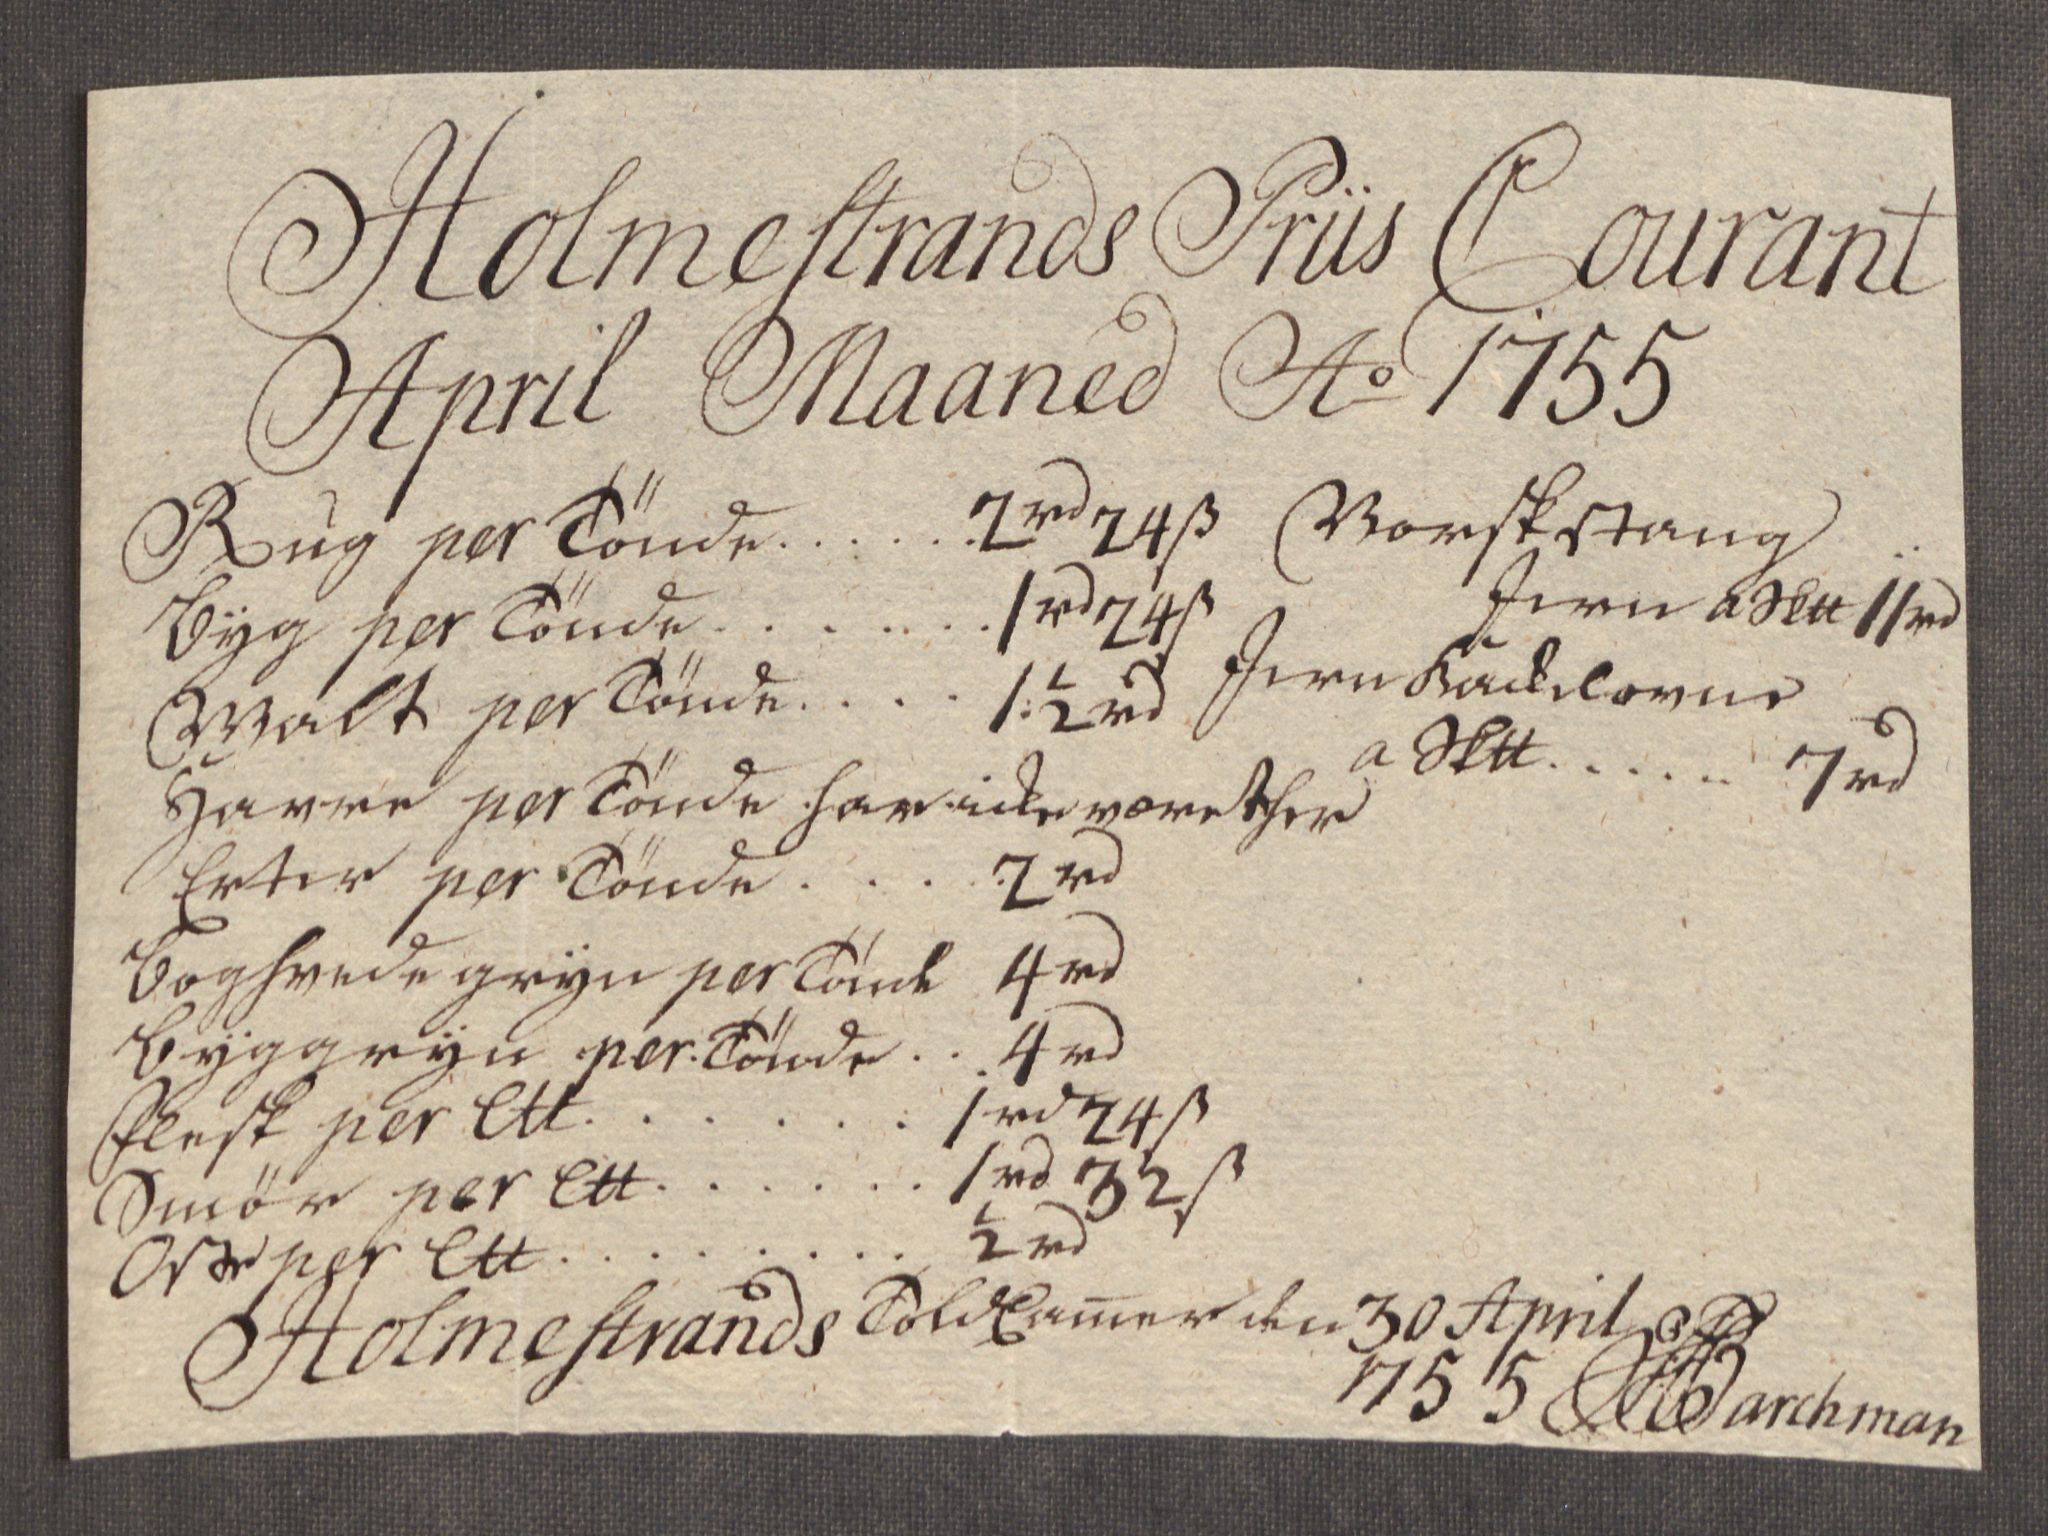 Holmestrands Priis Courant
April Maaned Ao 1755
Rug per Tönde . . . . . . 2 rd 24 ß
Byg per Tönde . . . . . . 1 rd 24 ß
Malt per Tönde . . . . 1 ½ rd
Havre per Tönde har icke været her
Erter per Tönde . . . . 2 rd
Boghvede gryn per Tönde 4 rd
Byggryn per Tönde . . 4 rd
Flesk per Ltt . . . . . . 1 rd 24 ß
Smör per Ltt . . . . . . 1 rd 32 ß
Oste per Ltt . . . . . . . . ½ rd
Norsk stang
Jern a Sktt 11 rd
Jern Kackelovne
a Sktt . . . . . . 7 rd
Holmestrands Told Camer den 30 April
1755 Barchman